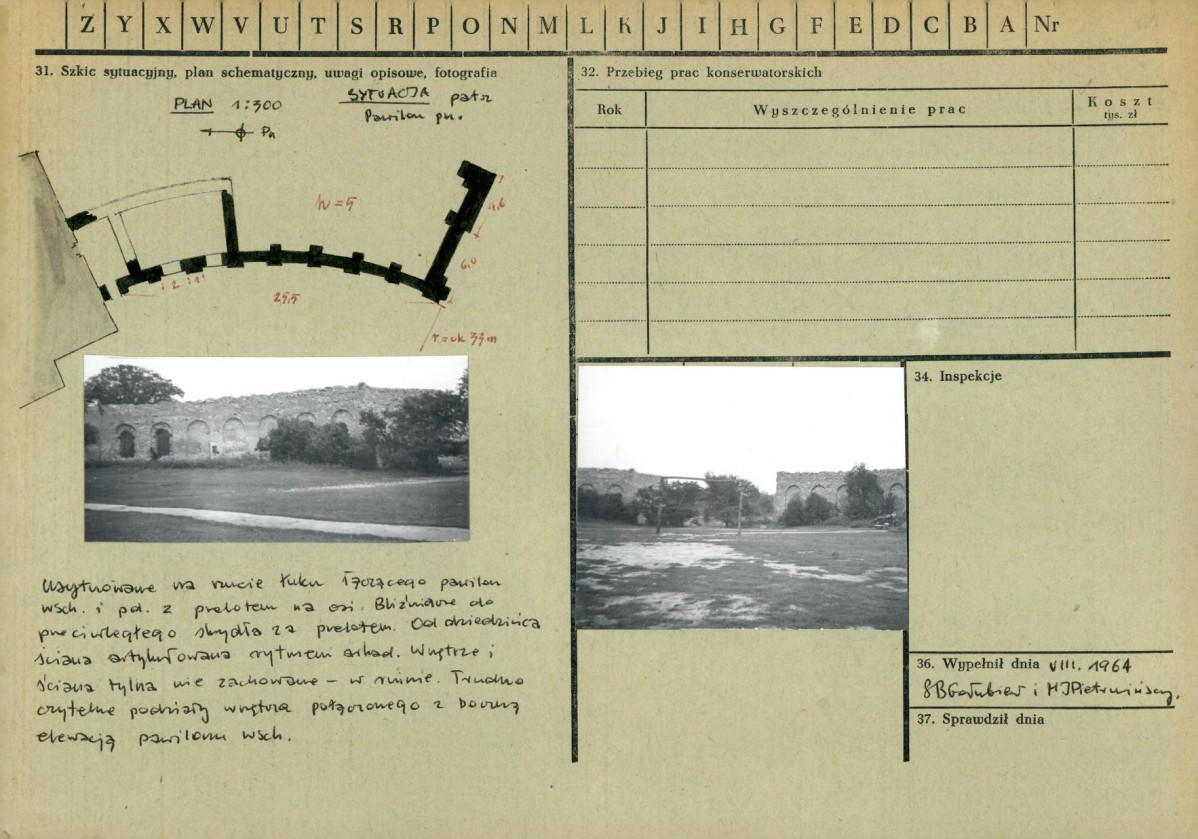 Z Y X W V U T S R P O N M L K J I H G F E D C B A Nr
31. Szkic sytuacyjny, plan schematyczny, uwagi opisowe, fotografia
PLAN 1:300
SYTUACJA patrz
Pawilon pn.
Pn
h=5
4,6
6,0
2
1
25,5
r=ok 33m
Usytuowane na rzucie łuku łączącego pawilon
wsch. i pd. z przelotem na osi. Bliźniacze do
przeciwległego skrzydła za przelotem. Od dziedzińca
ściana artykułowana rytmem arkad. Wnętrze i
ściana tylna nie zachowane – w ruinie. Trudno
czytelne podziały wnętrza połączonego z boczną
elewacją pawilonu wsch.
32. Przebieg prac konserwatorskich
Rok
Wyszczególnienie prac
Koszt
tys. zł
34. Inspekcje
36. Wypełnił dnia VIII. 1964
37. Sprawdził dnia